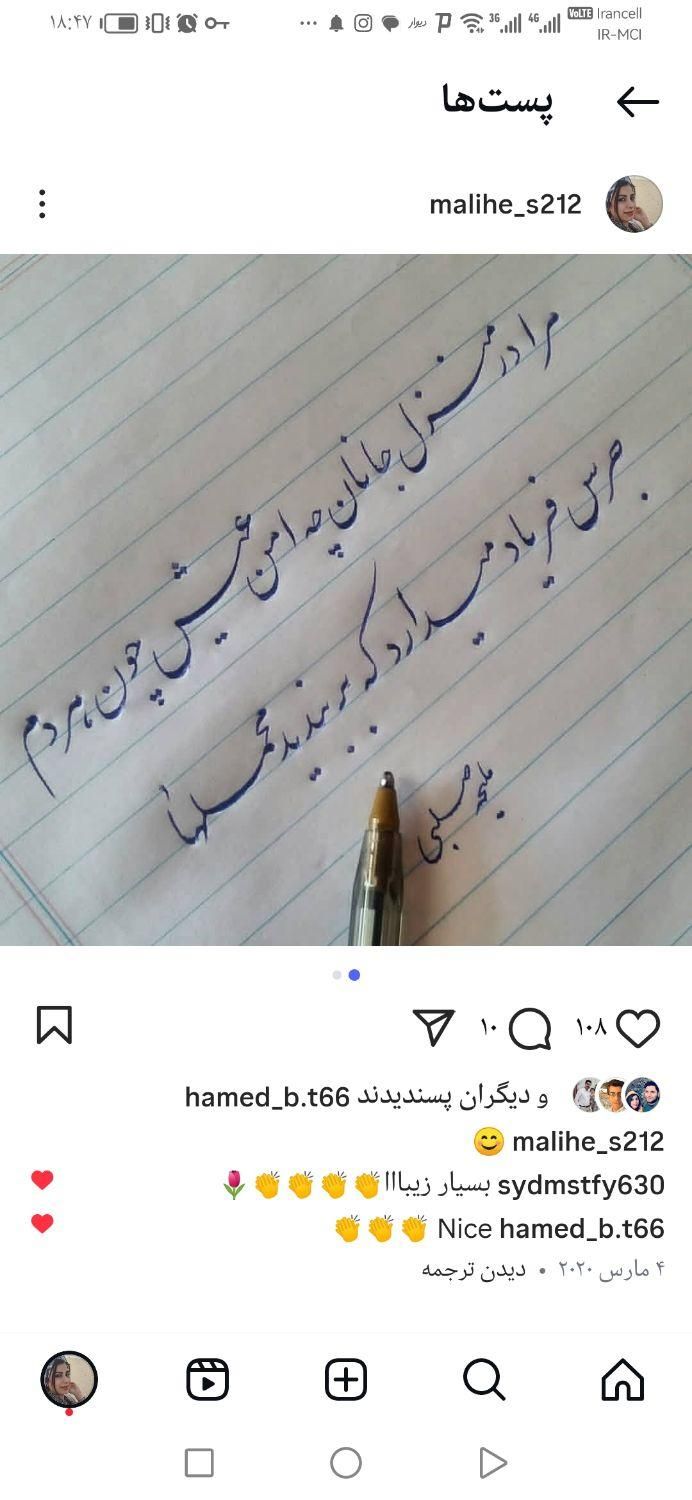 ۱۸:۴۷
3G 4G VoLTE Irancell
IR-MCI
دیوار
پست‌ها
malihe_s212
مرا در منزل جانان چه امن عیش چون هر دم
جرس فریاد میدارد که بربندید محملها
ملیحه
۱۰ ۱۰۸
hamed_b.t66 و دیگران پسندیدند
malihe_s212 😊
sydmstfy630 بسیار زیبااا👏👏👏👏🌷
hamed_b.t66 Nice 👏👏👏
۴ مارس ۲۰۲۰ • دیدن ترجمه